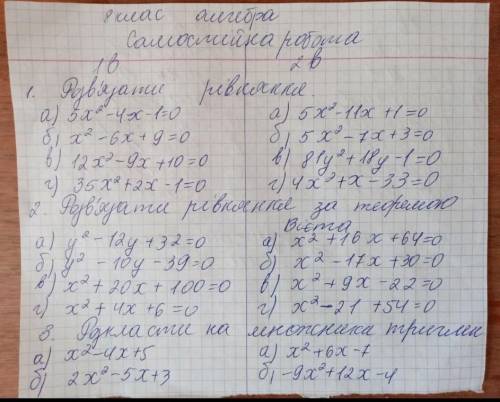 8 клас алгебра
Самостійна робота
1В 2В
1. Розв'язати рівняння.
а) 5x²-4x-1=0 а) 5x²-11x+1=0
б) x²-6x+9=0 б) 5x²-7x+3=0
в) 12x²-9x+10=0 в) 81y²+18y-1=0
г) 35x²+2x-1=0 г) 4x²+x-33=0
2. Розв'язати рівняння за теоремою Вієта
а) y²-12y+32=0 а) x²+16x+64=0
б) y²-10y-39=0 б) x²-17x+30=0
в) x²+20x+100=0 в) x²+9x-22=0
г) x²+4x+6=0 г) x²-21+54=0
3. Розкласти на множники тричлен
а) x²-4x+5 а) x²+6x-7
б) 2x²-5x+3 б) -9x²+12x-4